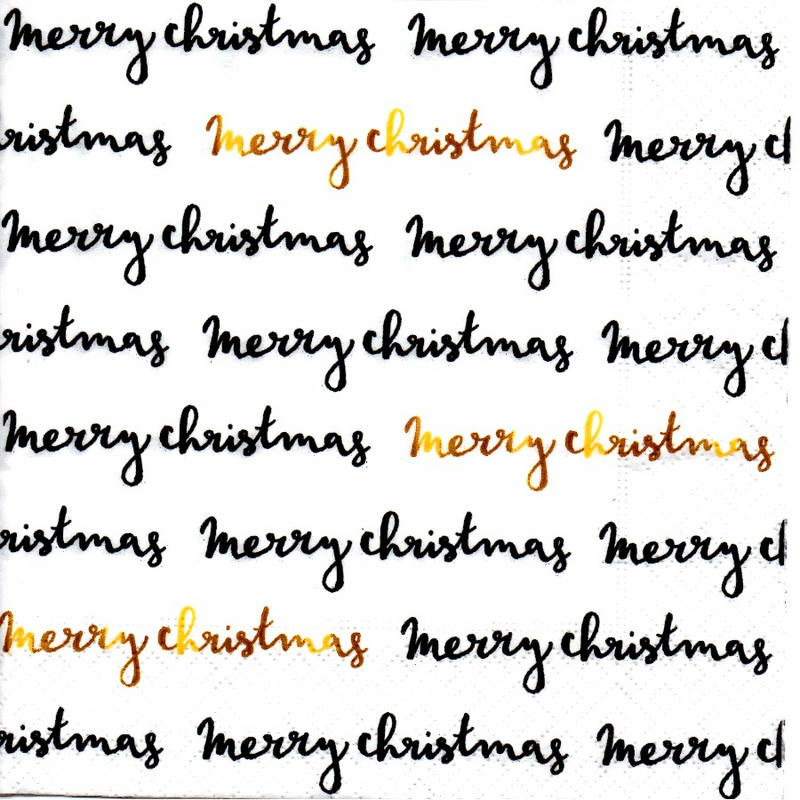 Merry christmas Merry christmas
ristmas Merry christmas Merry cl
Merry christmas Merry christmas
ristmas Merry christmas Merry cl
Merry christmas Merry christmas
ristmas Merry christmas Merry cl
Merry christmas Merry christmas
ristmas Merry christmas Merry cl